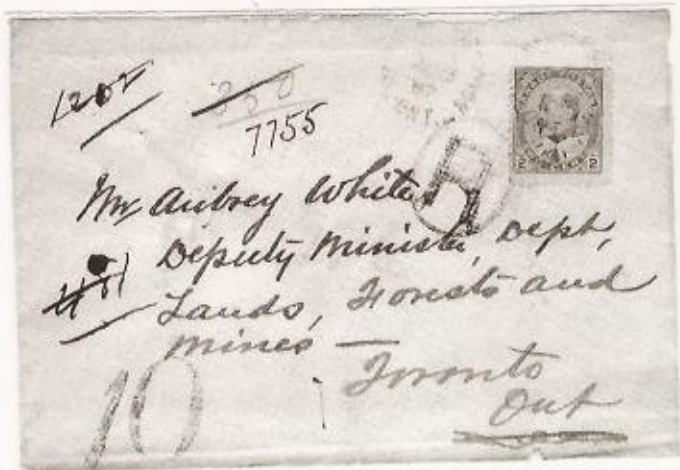 350
7755
R
2 2
Mr Aubrey White
Deputy Minister, Dept,
Lands, Forests and
Mines —
Toronto
Ont
10